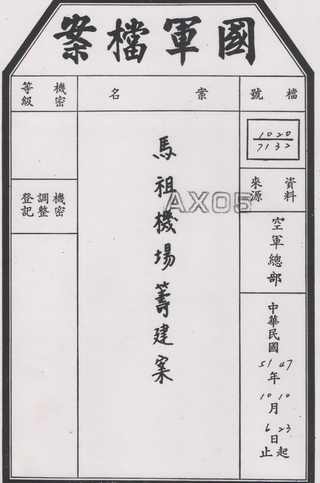 國軍檔案
檔號
1020
7132
資料
來源
空軍總部
中華民國
47 51
年
10 10
月
23 6
日
起止
案名
馬祖機場籌建案
AX05
機密
等級
機密
調整
登記